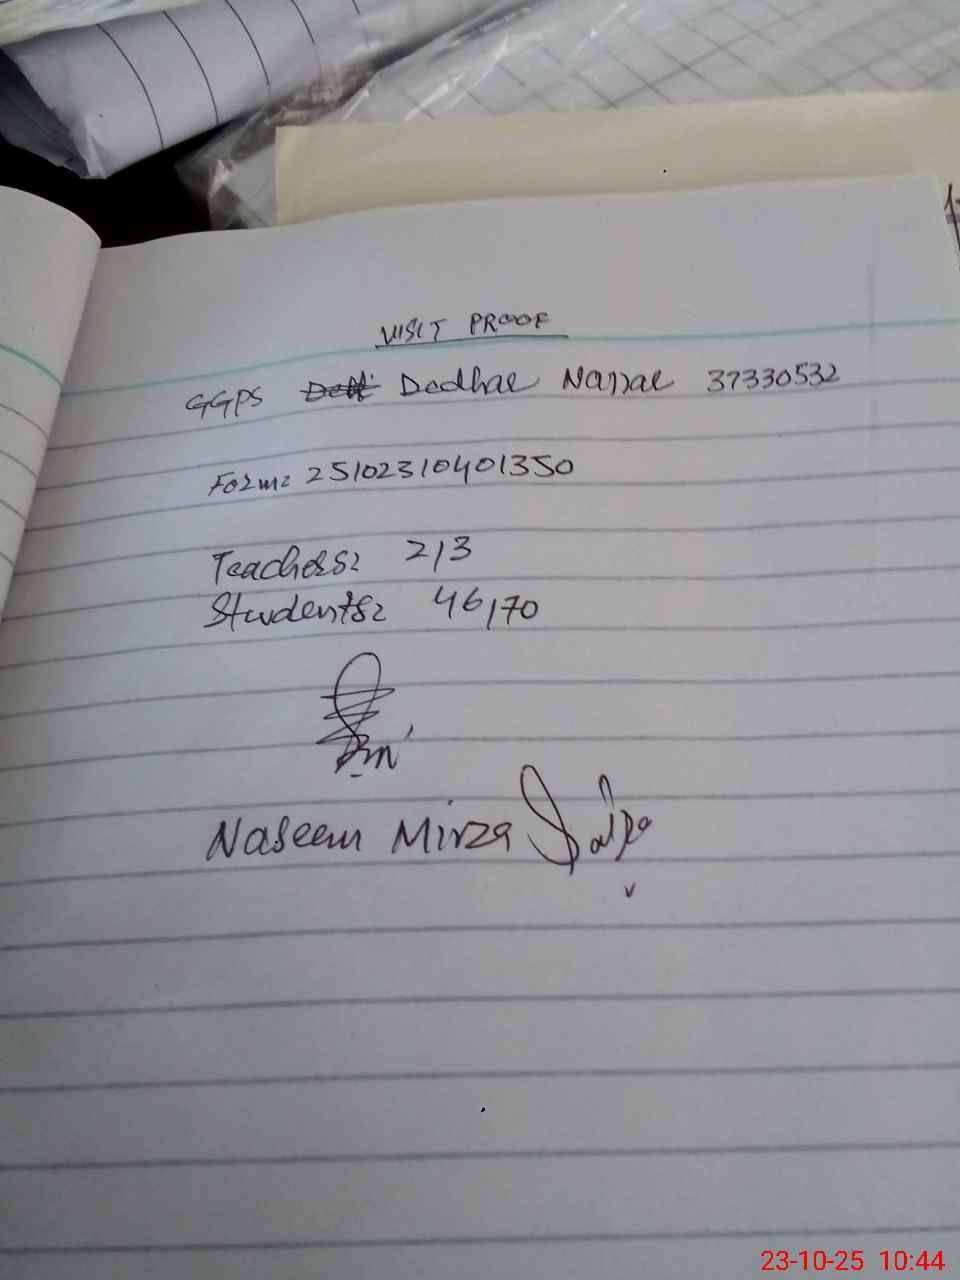 VISIT PROOF
GGPS Dadhar Najjar 37330532
Form: 25102310401350
Teachers: 2/3
Students: 46/70
Naseem Mirza
23-10-25 10:44